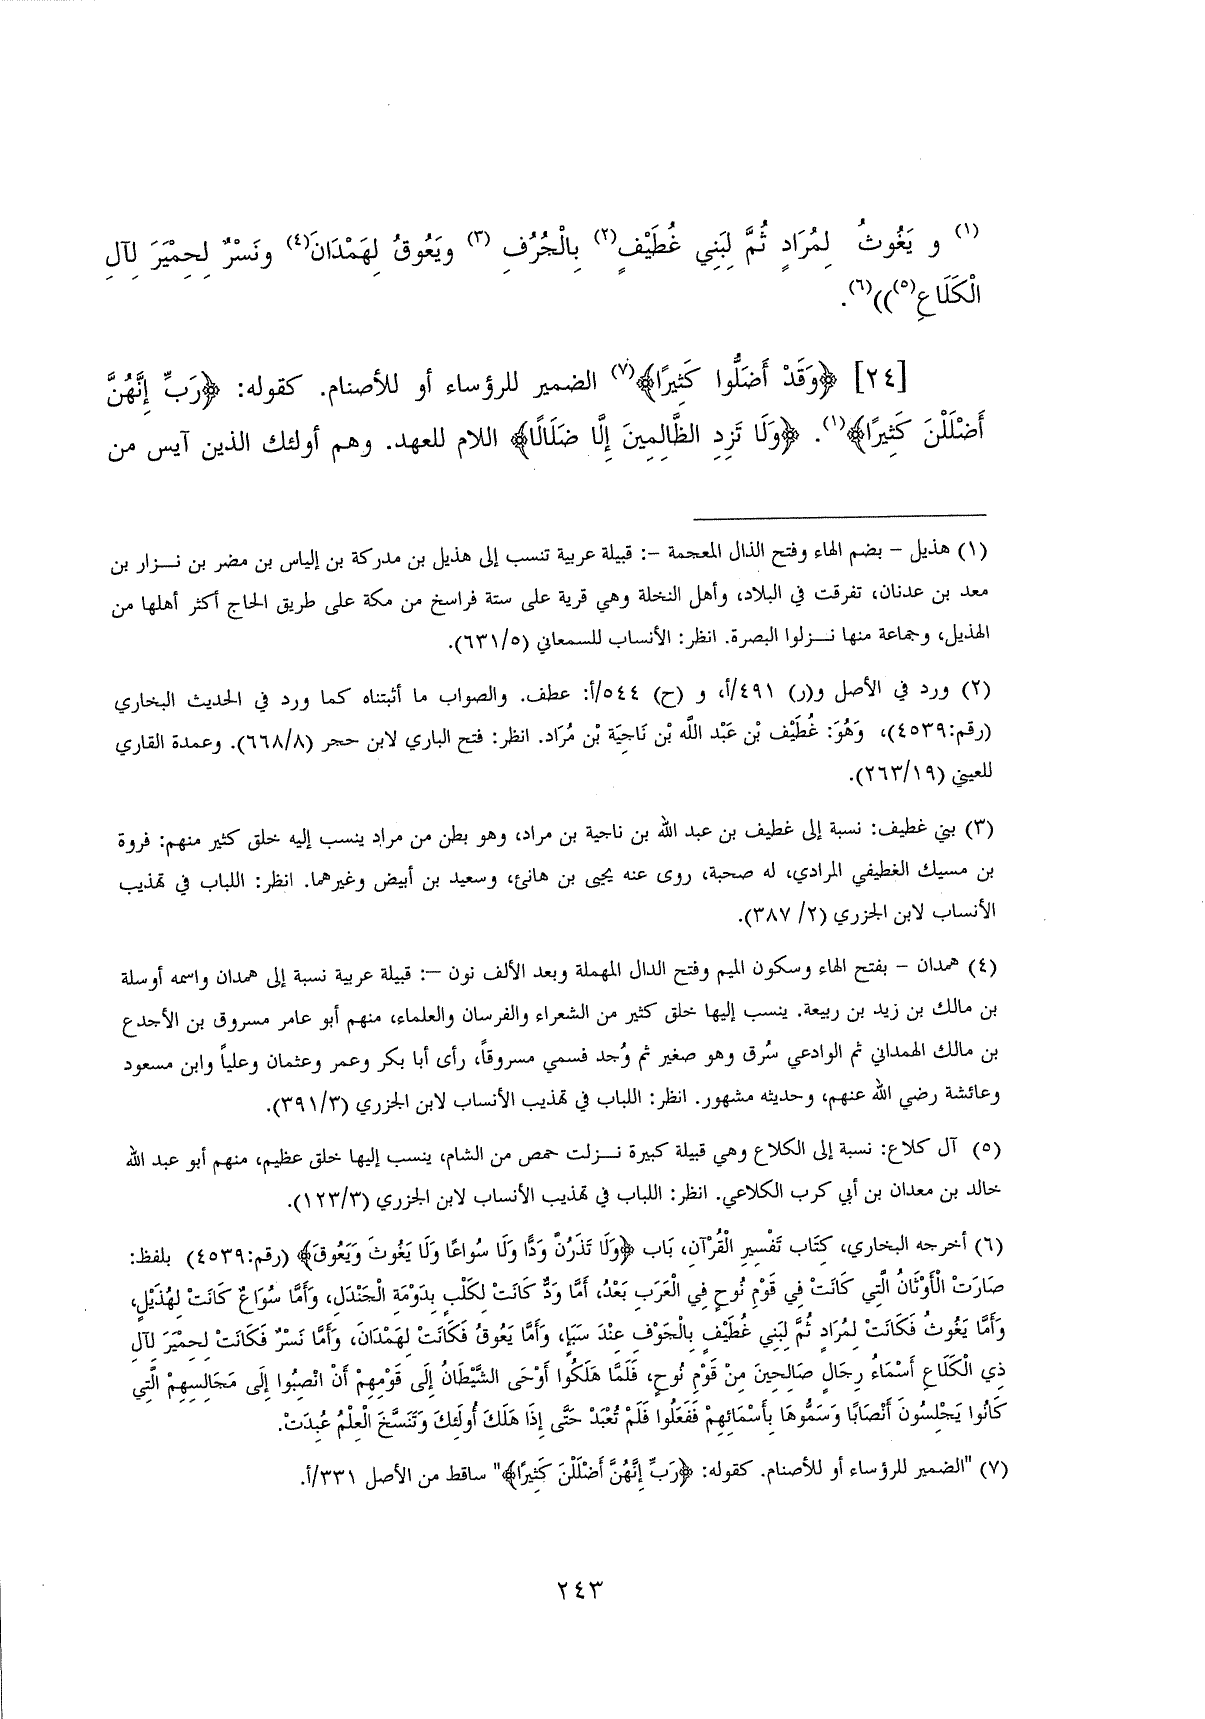 (١) و يَغُوثُ لِمُرَادٍ ثُمَّ لِبَنِي غُطَيْفٍ(٢) بِالْجُرُفِ (٣) ويَعُوقُ لِهَمْدَانَ(٤) ونَسْرٌ لِحِمْيَرَ لِآلِ
الْكَلَاعِ(٥)))(٦).
[٢٤] ﴿وَقَدْ أَضَلُّوا كَثِيرًا﴾(٧) الضمير للرؤساء أو للأصنام. كقوله: ﴿رَبِّ إِنَّهُنَّ
أَضْلَلْنَ كَثِيرًا﴾(١). ﴿وَلَا تَزِدِ الظَّالِمِينَ إِلَّا ضَلَالًا﴾ اللام للعهد. وهم أولئك الذين آيس من
(١) هذيل – بضم الهاء وفتح الذال المعجمة –: قبيلة عربية تنسب إلى هذيل بن مدركة بن إلياس بن مضر بن نــزار بن
معد بن عدنان، تفرقت في البلاد، وأهل النخلة وهي قرية على ستة فراسخ من مكة على طريق الحاج أكثر أهلها من
الهذيل، وجماعة منها نــزلوا البصرة. انظر: الأنساب للسمعاني (٦٣١/٥).
(٢) ورد في الأصل و(ر) ٤٩١/أ، و (ح) ٥٤٤/أ: عطف. والصواب ما أثبتناه كما ورد في الحديث البخاري
(رقم:٤٥٣٩)، وَهُوَ: غُطَيْف بْن عَبْد اللَّه بْن نَاجِيَة بْن مُرَاد. انظر: فتح الباري لابن حجر (٦٦٨/٨). وعمدة القاري
للعيني (٢٦٣/١٩).
(٣) بني غطيف: نسبة إلى غطيف بن عبد الله بن ناجية بن مراد، وهو بطن من مراد ينسب إليه خلق كثير منهم: فروة
بن مسيك الغطيفي المرادي، له صحبة، روى عنه يحيى بن هانئ، وسعيد بن أبيض وغيرهما. انظر: اللباب في تهذيب
الأنساب لابن الجزري (٢/ ٣٨٧).
(٤) همدان – بفتح الهاء وسكون الميم وفتح الدال المهملة وبعد الألف نون –: قبيلة عربية نسبة إلى همدان واسمه أوسلة
بن مالك بن زيد بن ربيعة. ينسب إليها خلق كثير من الشعراء والفرسان والعلماء، منهم أبو عامر مسروق بن الأجدع
بن مالك الهمداني ثم الوادعي سُرق وهو صغير ثم وُجد فسمي مسروقاً، رأى أبا بكر وعمر وعثمان وعلياً وابن مسعود
وعائشة رضي الله عنهم، وحديثه مشهور. انظر: اللباب في تهذيب الأنساب لابن الجزري (٣٩١/٣).
(٥) آل كلاع: نسبة إلى الكلاع وهي قبيلة كبيرة نــزلت حمص من الشام، ينسب إليها خلق عظيم، منهم أبو عبد الله
خالد بن معدان بن أبي كرب الكلاعي. انظر: اللباب في تهذيب الأنساب لابن الجزري (١٢٣/٣).
(٦) أخرجه البخاري، كِتَاب تَفْسِيرِ الْقُرْآنِ، بَاب ﴿وَلَا تَذَرُنَّ وَدًّا وَلَا سُوَاعًا وَلَا يَغُوثَ وَيَعُوقَ﴾ (رقم:٤٥٣٩) بلفظ:
صَارَتْ الْأَوْثَانُ الَّتِي كَانَتْ فِي قَوْمِ نُوحٍ فِي الْعَرَبِ بَعْدُ، أَمَّا وَدٌّ كَانَتْ لِكَلْبٍ بِدَوْمَةِ الْجَنْدَلِ، وَأَمَّا سُوَاعٌ كَانَتْ لِهُذَيْلٍ،
وَأَمَّا يَغُوثُ فَكَانَتْ لِمُرَادٍ ثُمَّ لِبَنِي غُطَيْفٍ بِالْجَوْفِ عِنْدَ سَبَإٍ، وَأَمَّا يَعُوقُ فَكَانَتْ لِهَمْدَانَ، وَأَمَّا نَسْرٌ فَكَانَتْ لِحِمْيَرَ لِآلِ
ذِي الْكَلَاعِ أَسْمَاءُ رِجَالٍ صَالِحِينَ مِنْ قَوْمِ نُوحٍ، فَلَمَّا هَلَكُوا أَوْحَى الشَّيْطَانُ إِلَى قَوْمِهِمْ أَنْ انْصِبُوا إِلَى مَجَالِسِهِمْ الَّتِي
كَانُوا يَجْلِسُونَ أَنْصَابًا وَسَمُّوهَا بِأَسْمَائِهِمْ فَفَعَلُوا فَلَمْ تُعْبَدْ حَتَّى إِذَا هَلَكَ أُولَئِكَ وَتَنَسَّخَ الْعِلْمُ عُبِدَتْ.
(٧) "الضمير للرؤساء أو للأصنام. كقوله: ﴿رَبِّ إِنَّهُنَّ أَضْلَلْنَ كَثِيرًا﴾" ساقط من الأصل ٣٣١/أ.
٢٤٣